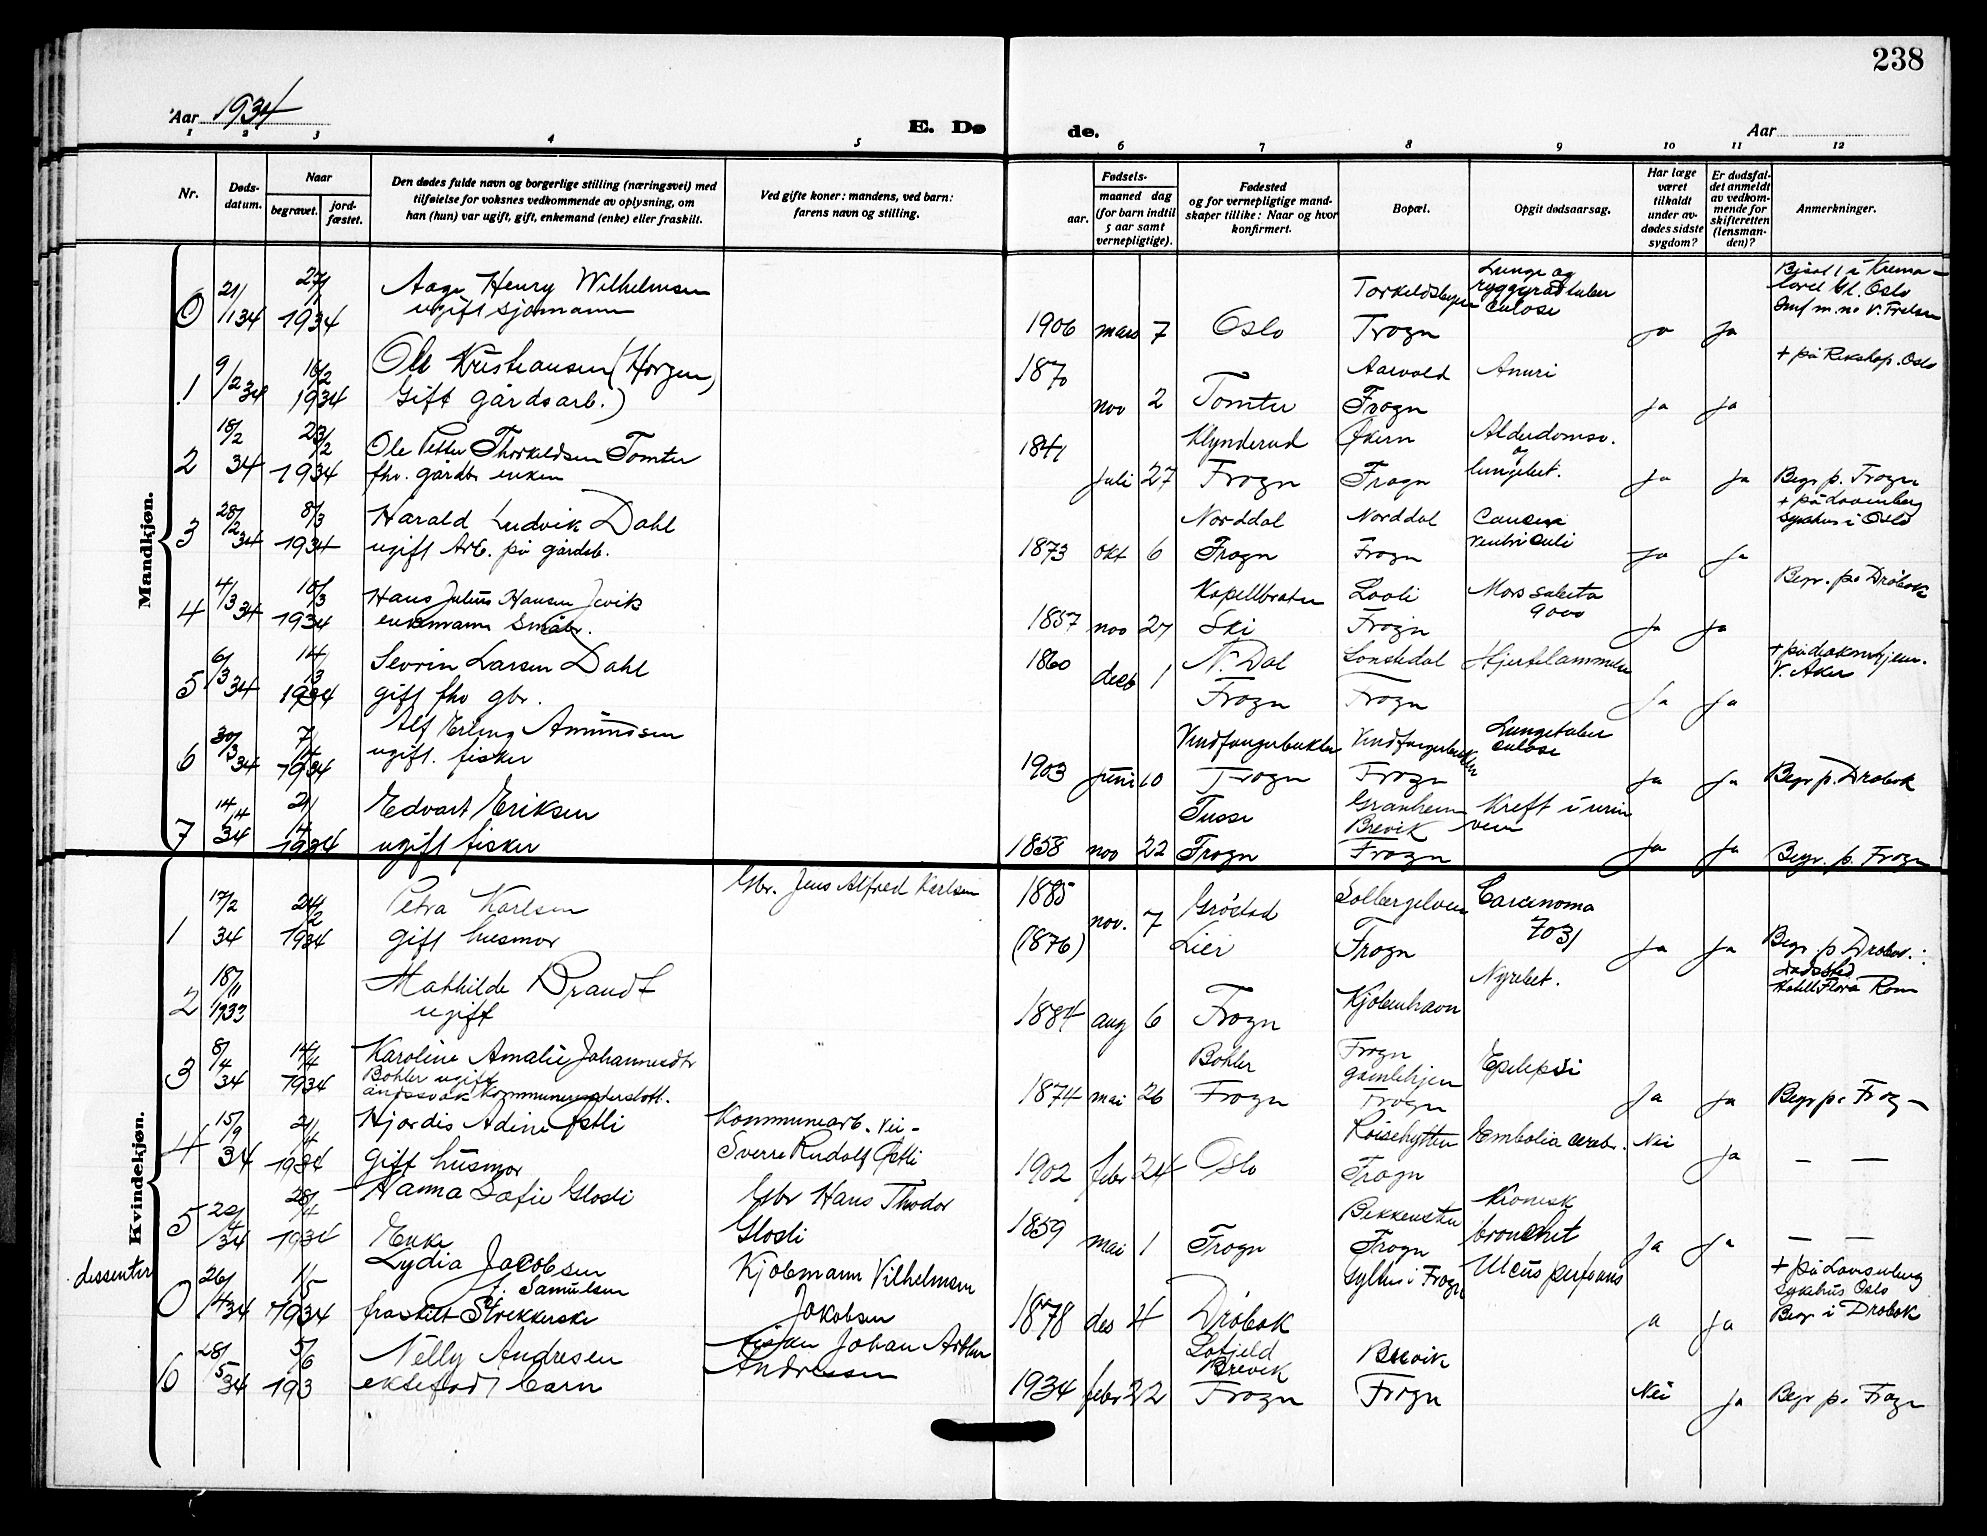 238
Aar 1934
E. Døde.
Aar
1 2 3 4 5 6 7 8 9 10 11 12
Nr.
Døds-
datum.
Naar
begravet.
jord-
fæstet.
Den dødes fulde navn og borgerlige stilling (næringsvei) med
tilføielse for voksnes vedkommende av oplysning, om
han (hun) var ugift, gift, enkemand (enke) eller fraskilt.
Ved gifte koner: mandens, ved barn:
farens navn og stilling.
Fødsels-
aar.
maaned dag
(for barn indtil
5 aar samt
vernepligtige).
Fødested
og for vernepligtige mand-
skaper tillike: Naar og hvor
konfirmert.
Bopæl.
Opgit dødsaarsag.
Har læge
været
tilkaldt
under av-
dødes sidste
sygdom?
Er dødsfal-
det anmeldt
av vedkom-
mende for
skifteretten
(lensman-
den)?
Anmerkninger.
Mandkjøn.
0 21/1 34 27/1 1934 Aage Henry Wilhelmsen
ugift sjømann
1906 mars 7 Oslo
Frogn
Lunge og
ryggradtuber
culose
ja ja
1 9/2 34 16/2 1934 Ole Kristiansen (Horgen)
Gift gårdsarb.
1870 nov 2 Tomter
Aarvold
Frogn
Anuri
ja ja
+ på Rikshosp. Oslo
2 18/2 34 23/2 1934 Ole Petter Thorkeldsen Tomter
fhv. gårdbr enkem
1841 juli 27 Klynderud
Frogn
Økern
Frogn
Alderdomsv.
og
lungebet.
ja ja
Begr p. Frogn
3 28/2 34 8/3 1934 Harald Ludvik Dahl
ugift Arb. på gårdsb.
1873 okt 6 Norddal
Frogn
Norddal
Frogn
Cancer
ventriculi
ja ja
+ på Lovisenberg
sykehus i Oslo
4 4/3 34 10/3 1934 Hans Julius Hansen
enkemann småbr.
1857 nov 27 Kapellbråten
Ski
Frogn
Mors subita
9000
ja ja
Begr. på Drøbak
5 6/3 34 14/3 1934 Sevrin Larsen Dahl
gift fhv gbr.
1860 decb 1 N. Dal
Frogn
Frogn
Hjertelammelse
ja ja
V. Aker
6 30/3 34 7/4 1934 Alf Erling Amundsen
ugift. fisker
1903 juni 10 Vindfangerbukten
Frogn
Vindfangerbukten
Frogn
Lungetuber
culose
ja ja
Begr p. Drøbak
7 14/4 34 21/4 1934 Edvart Eriksen
ugift fisker
1858 nov 22 Tusse
Frogn
Granheim
Brevik
Frogn
Kreft i urin
veiene
ja ja
Begr. p. Frogn
Kvindekjøn.
1 17/2 34 24/2 1934 Petra Karlsen
gift husmor
Gbr. Jens Alfred Karlsen
1885
(1876)
nov. 7 Grøstad
Lier
Solbergelven
Frogn
Carcinoma
7031
ja ja
Begr. p Drøbak.
2 18/11 1933 Mathilde Brandt
ugift
1884 aug 6 Frogn
Kjøbenhavn
Nyrebet.
Dødssted
Hotell Flora Rom
3 8/4 34 14/4 1934 Karoline Amalie Johannesdtr
Bohler ugift
åndssvak kommuneunderstøtt.
1874 mai 26 Bohler
Frogn
Frogn
gamlehjem
Frogn
Epilepsi
ja ja
Begr p. Frogn
4 15/9 34 21/4 1934 Hjørdis Adine Østli
gift husmor
Kommunearb. Vei-
Sverre Rudolf Østli
1902 febr 24 Oslo
Roisehytten
Frogn
Embolia cereb.
Nei ja
— —
5 22/4 34 28/4 1934 Hanna Sofie Glosli
Enke
Gbr Hans Thodor
Glosli
1859 mai 1 Frogn
Bekkensten
Frogn
Kronisk
bronchit
ja ja
— —
dissenter
0 26/4 34 1/5 1934 Lydia Jacobsen
f. Samuelsen
fraskilt Strekkerske
Kjøbmann Vilhelmsen
Jakobsen
1878 des 4 Drøbak
Sylhus i Frogn
Ulcus perforans
ja ja
+ på Lovisenberg
sykehus Oslo
Begr i Drøbak
6 28/5 34 5/6 193 Nelly Andresen
ektefødt barn
Fisker Johan Arthur
Andressen
1934 febr 22 Lofjeld
Brevik
Frogn
Brevik
Frogn
Nei ja
Begr p. Frogn